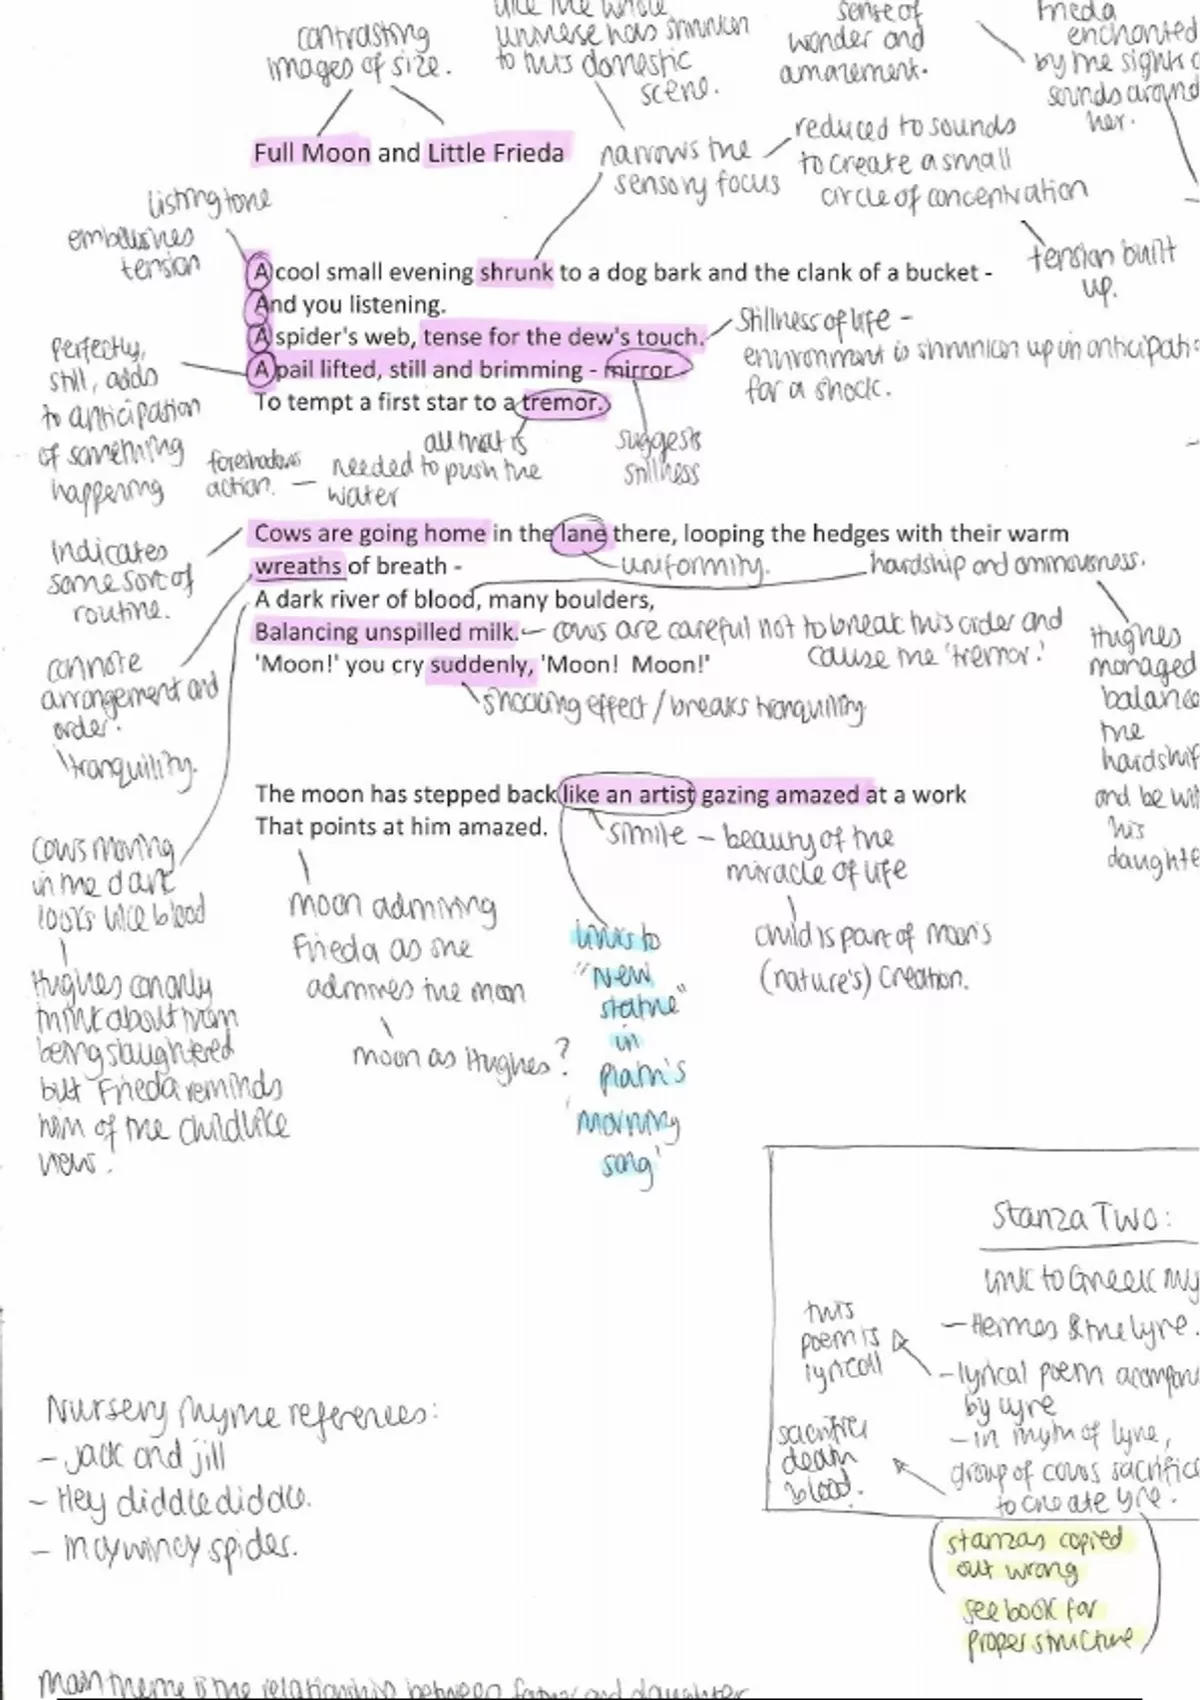 contrasting
images of size.
universe has shrunken
to this domestic
scene.
sense of
wonder and
amazement.
Frieda
enchanted
by the sights
sounds around
her.
Full Moon and Little Frieda
narrows the
sensory focus
reduced to sounds
to create a small
circle of concentration
tension built
up.
listing tone
embellishes
tension
A cool small evening shrunk to a dog bark and the clank of a bucket -
And you listening.
A spider's web, tense for the dew's touch.
A pail lifted, still and brimming - mirror
To tempt a first star to a tremor.
Stillness of life -
environment is shrunken up in anticipati
for a shock.
Perfectly,
still, adds
to anticipation
of something
happening
foreshadows
action.
all that is
needed to push the
water
suggests
stillness
Cows are going home in the lane there, looping the hedges with their warm
wreaths of breath -
A dark river of blood, many boulders,
Balancing unspilled milk.
'Moon!' you cry suddenly, 'Moon! Moon!'
Indicates
some sort of
routine.
uniformity.
hardship and ominousness.
cows are careful not to break this order and
cause the 'tremor!'
shocking effect / breaks tranquility
connote
arrangement and
order.
tranquility.
Hughes
managed
balance
the
hardship
and be wit
his
daughte
The moon has stepped back like an artist gazing amazed at a work
That points at him amazed.
simile - beauty of the
miracle of life
child is part of moon's
(nature's) creation.
cows moving
in the dark
looks like blood
Hughes can only
think about them
being slaughtered
but Frieda reminds
him of the childlike
view.
moon admiring
Frieda as she
admires the moon
moon as Hughes?
links to
"New
statue"
in
Plath's
'morning
song'
Stanza Two:
link to Greek my
- Hermes & the lyre.
- lyrical poem accompani
by lyre
- in myth of lyre,
group of cows sacrifice
to create lyre.
this
poem is
lyricall
sacrifice
death
blood.
Nursery rhyme references:
- jack and jill
- Hey diddle diddle.
- incywincy spider.
(stanzas copied
out wrong
see book for
proper structure)
main theme is the relationship between father and daughter